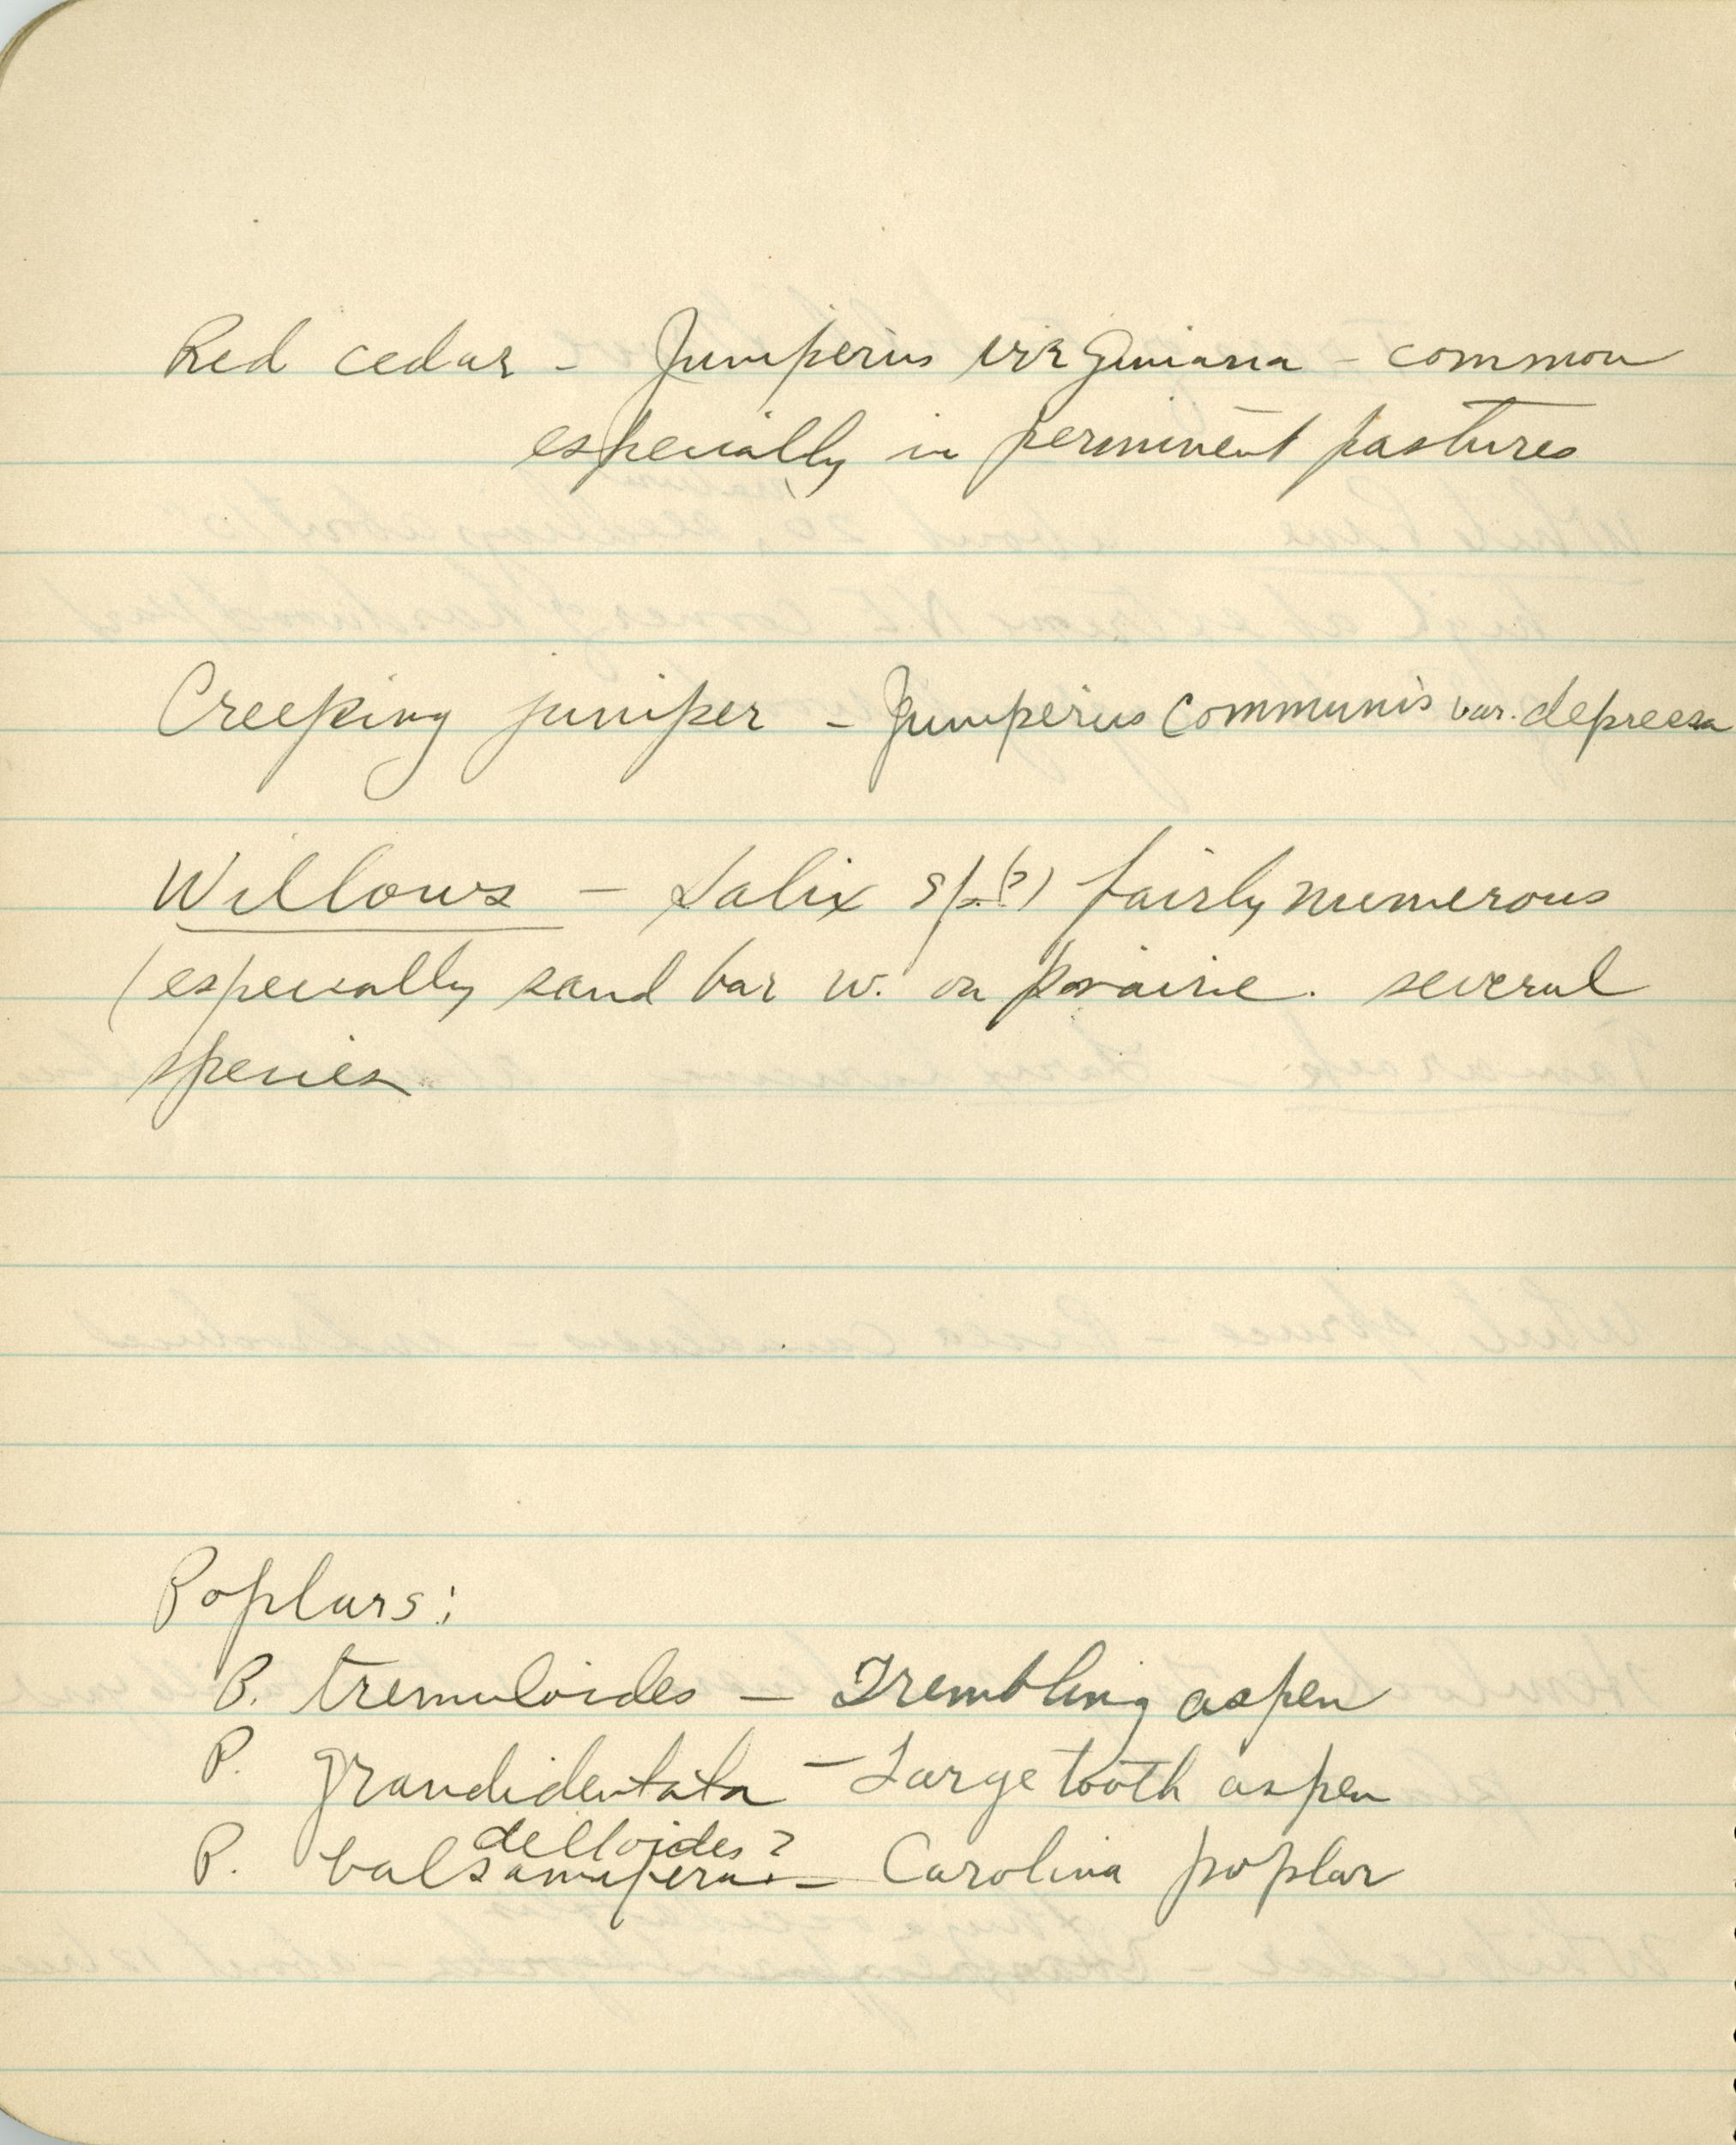 Red cedar - Juniperus virginiana - common
especially in perminent pastures
Creeping juniper - Juniperus communis var. depressa
Willows - Salix sp.(?) fairly numerous
(especially sand bar w. on prairie. several
species
Poplars:
P. tremuloides - Trembling aspen
P. grandidentata - Large tooth aspen
deltoides?
P. balsamifera - Carolina poplar